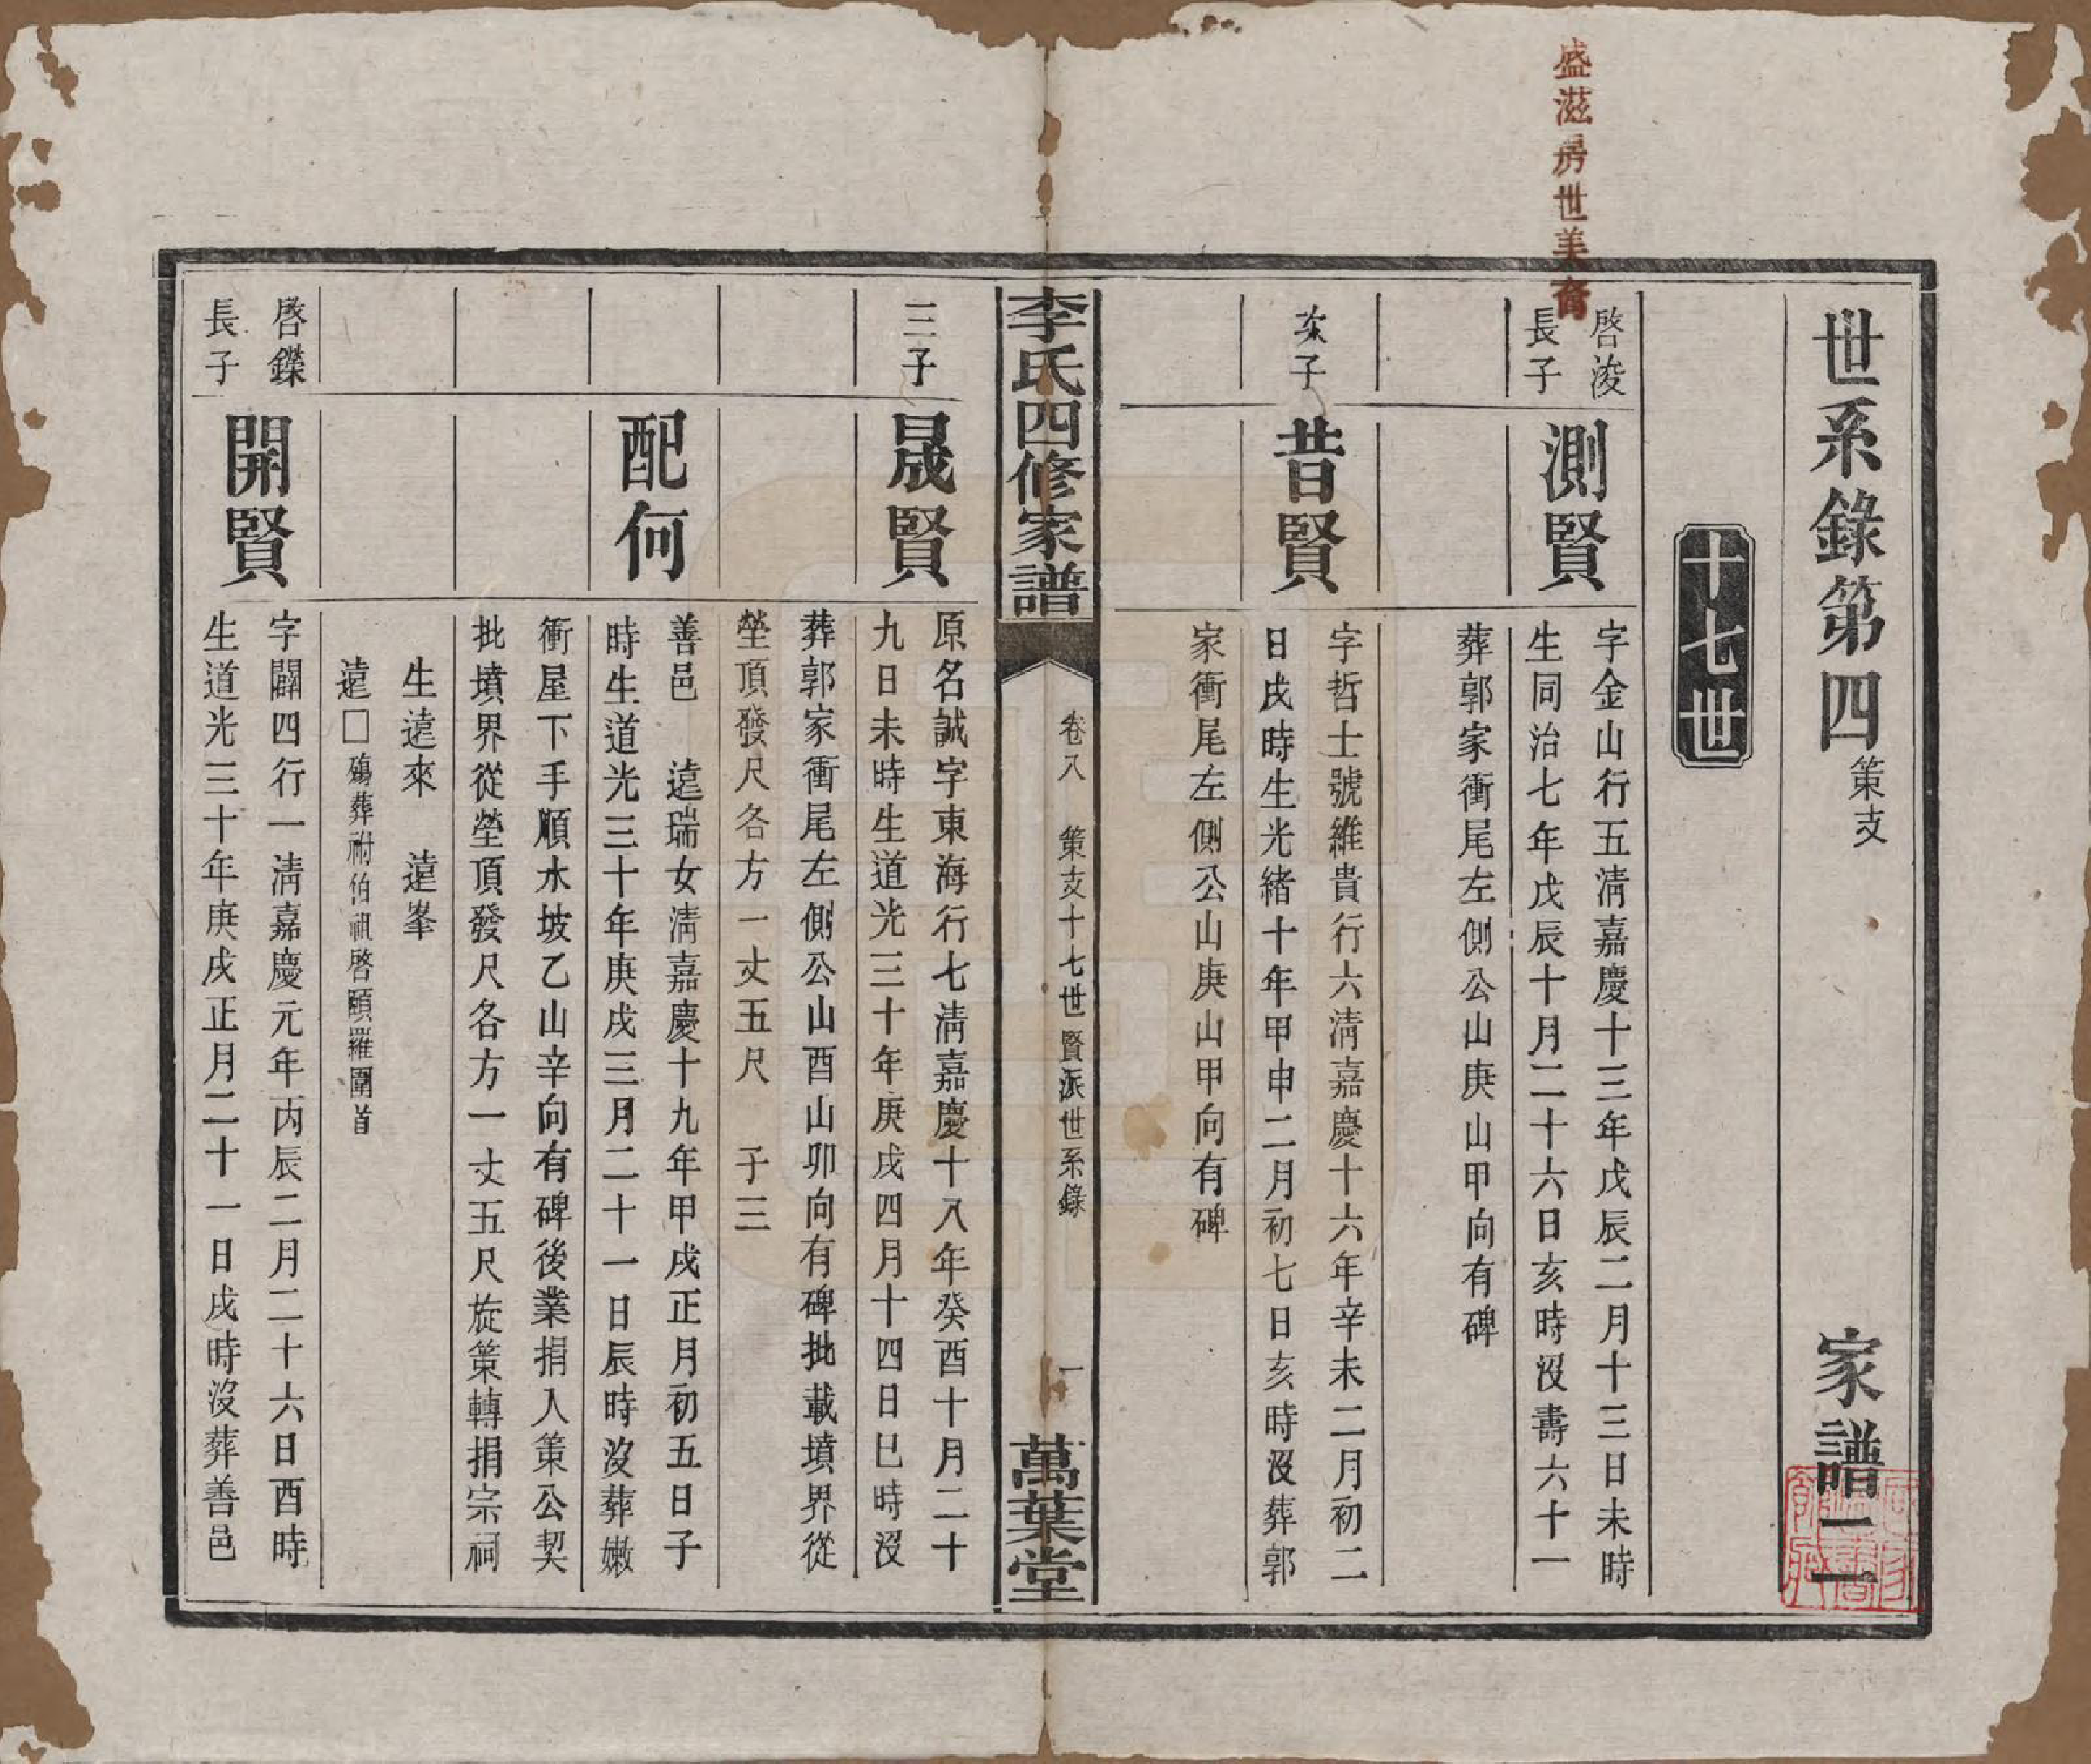 盛滋房世美裔
世系錄第四 策支 家譜一二
十七世
啓浚
長子
測賢
字金山行五淸嘉慶十三年戊辰二月十三日未時
生同治七年戊辰十月二十六日亥時沒壽六十一
葬郭家衝尾左側公山庚山甲向有碑
次子
昔賢
字哲士號維貴行六淸嘉慶十六年辛未二月初二
日戌時生光緒十年甲申二月初七日亥時沒葬郭
家衝尾左側公山庚山甲向有碑
李氏四修家譜 卷八 策支十七世賢派世系錄 一 萬葉堂
三子
晟賢
原名誠字東海行七淸嘉慶十八年癸酉十月二十
九日未時生道光三十年庚戌四月十四日巳時沒
葬郭家衝尾左側公山酉山卯向有碑批載墳界從
塋頂發尺各方一丈五尺 子三
配何
善邑 遠瑞女淸嘉慶十九年甲戌正月初五日子
時生道光三十年庚戌三月二十一日辰時沒葬嫩
衝屋下手順水坡乙山辛向有碑後業捐入策公契
批墳界從塋頂發尺各方一丈五尺旋策轉捐宗祠
生遠來 遠峯
遠□殤葬祔伯祖啓頤羅圍首
啓鑅
長子
開賢
字闢四行一淸嘉慶元年丙辰二月二十六日酉時
生道光三十年庚戌正月二十一日戌時沒葬善邑